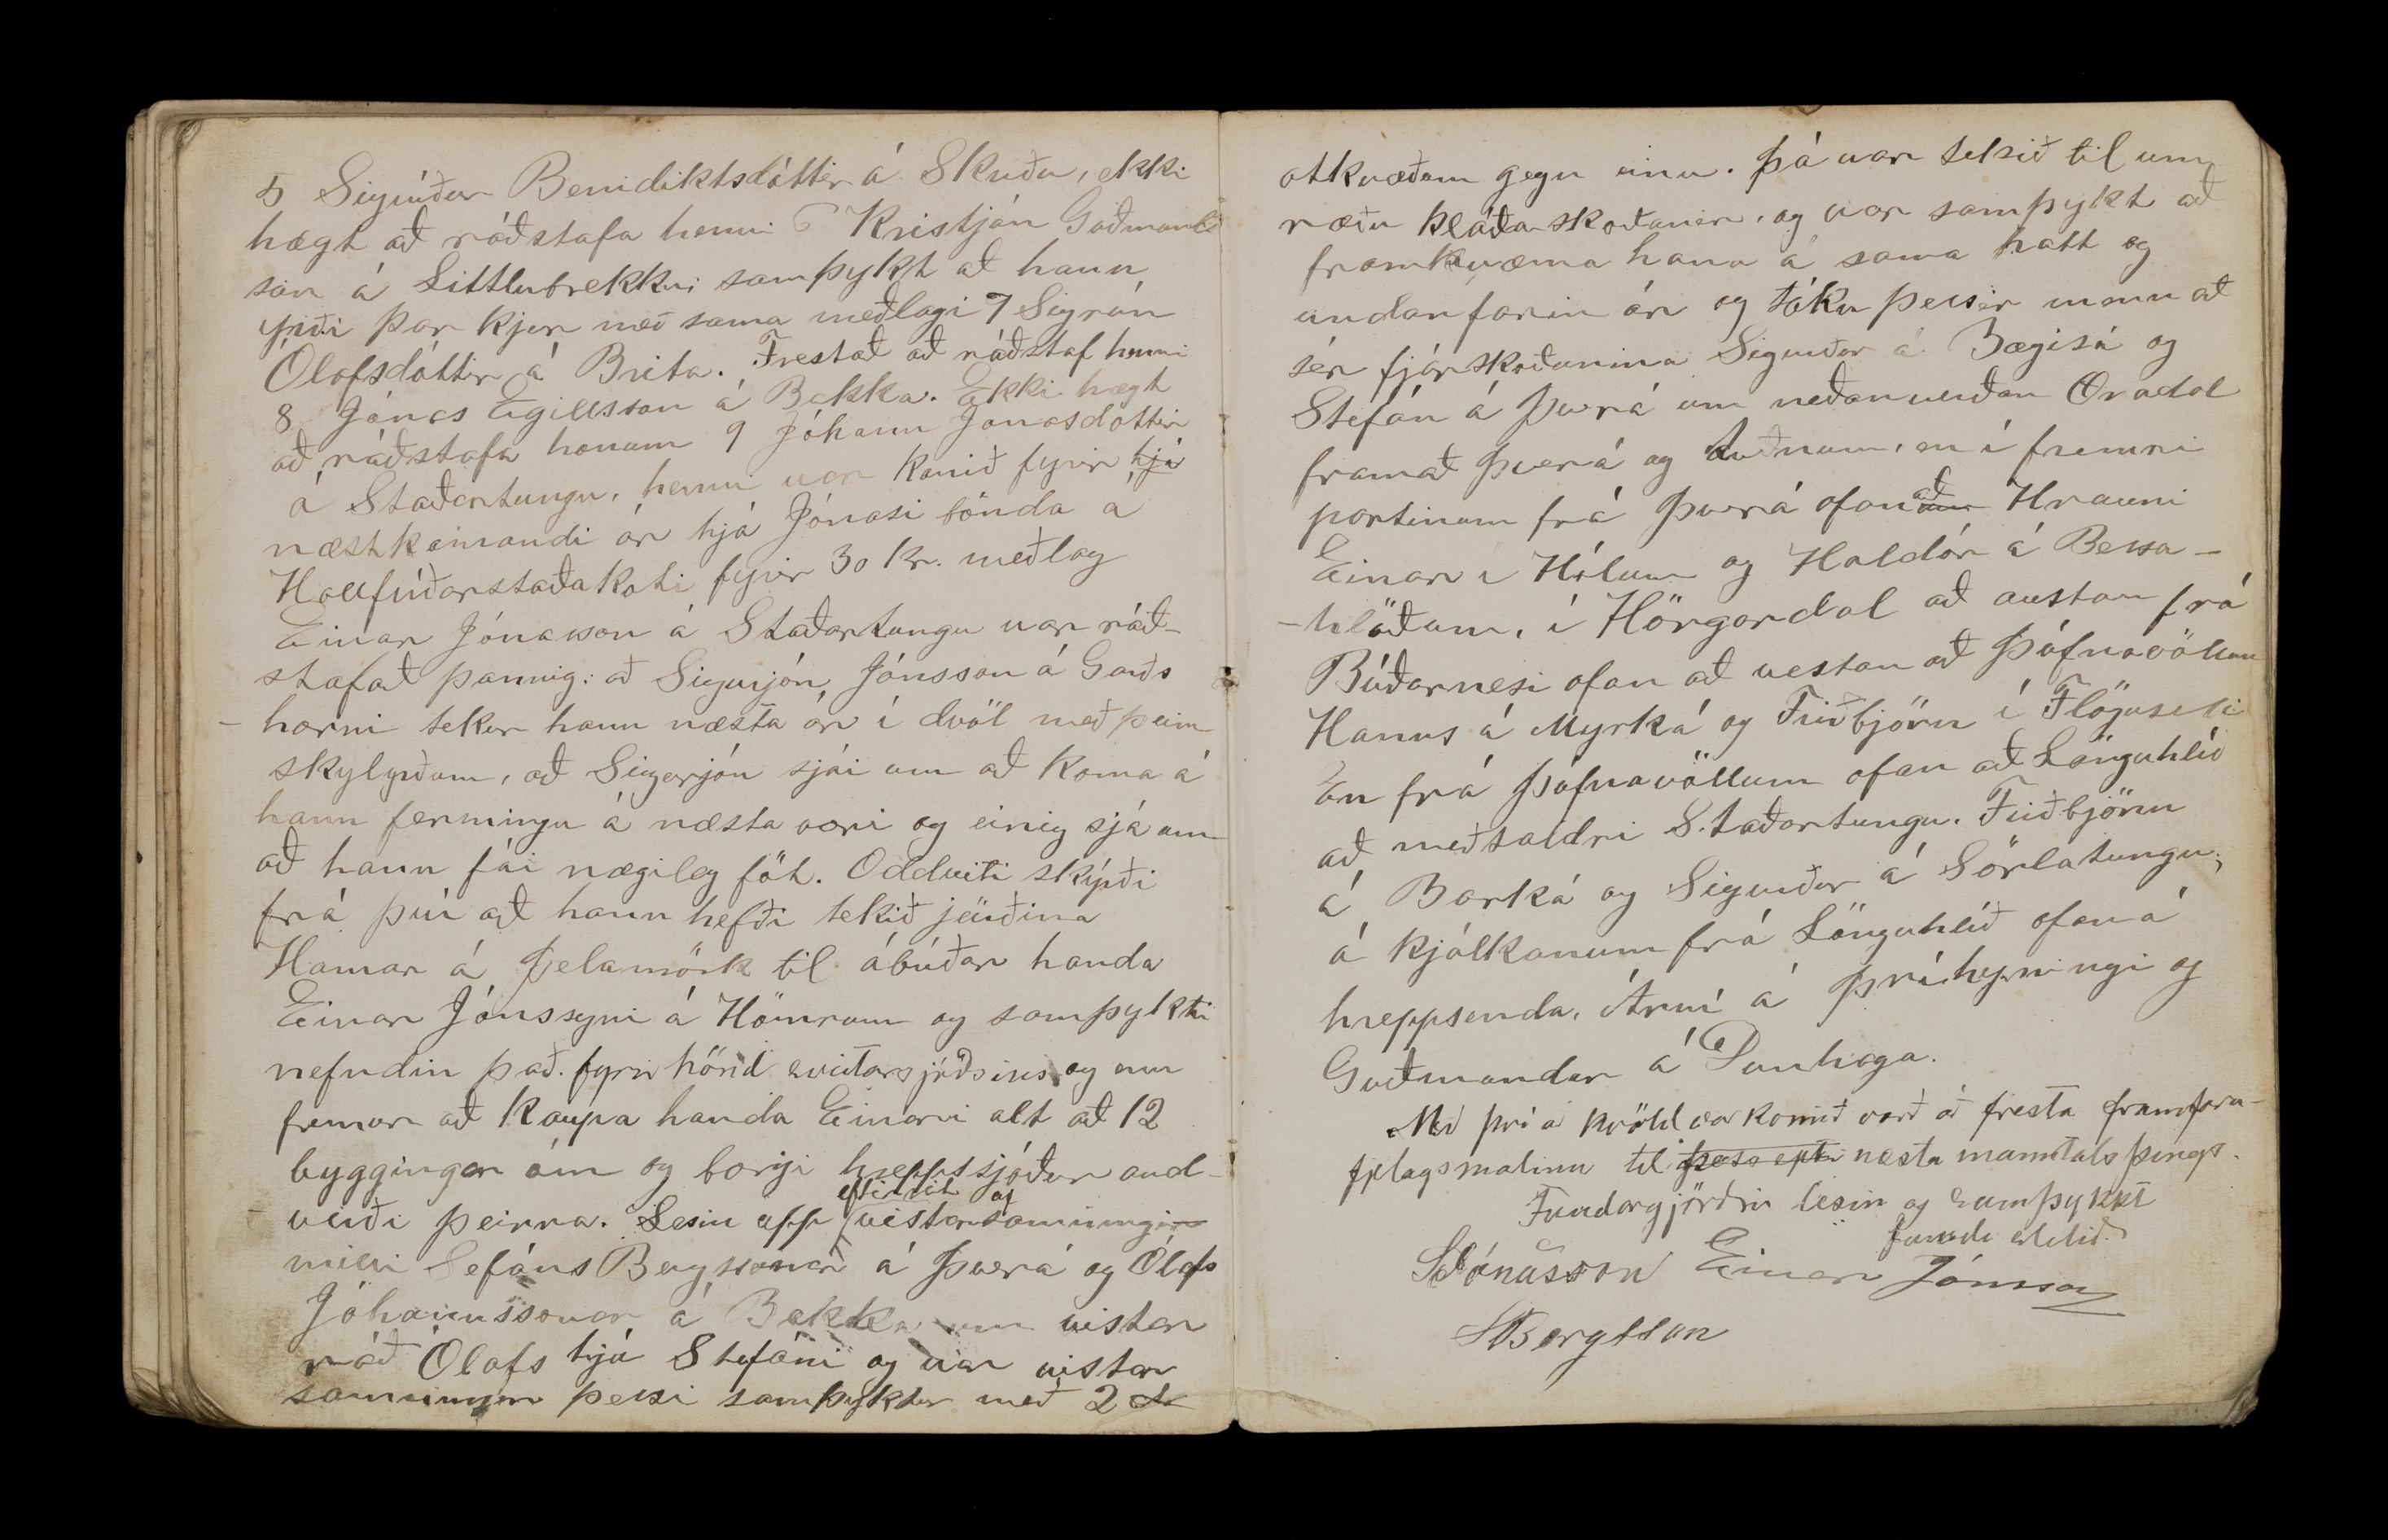 5 Sigríður Benidiktsdóttir á Skuðu, ekki
hægt að ráðstafa henni 6 Kristján Guðmunds
son á Littlubrekku samþykt að hann
yrði þar kjer með sama meðlagi 7 Sigrún
Ólafsdóttir á Brita. Frestað að ráðstaf henni
8 Jónas Egillsson á Bakka. Ekki hægt
að ráðstafa honum 9 Jóhann Jonasdóttir
á Staðartungu, henni var komið fyrir hjá
næstkomandi ár hjá Jónasi bónda á
Hallfríðarstaðakoti fyrir 30 kr. meðlag
Einar Jónasson á Staðartungu var ráð-
stafað þannig: að Sigurjón Jónsson á Garðs
- horni tekur hann næsta ár í dvöl með þeim
skylyrðum, að Sigurjón sjái um að koma á
hann fermingu á næsta vori og einig sjá um
að hann fái nægileg föt. Oddviti skýrði
frá því að hann hefði tekið jörðina
Hamar á Þelamörk til ábúðar handa
Einar Jónssyni á Hömrum og samþykti
nefndin það. fyrir hönd sveitarsjóðsins og enn
fremur að kaupa handa Einari alt að 12
byggingar ám og borgi hreppssjóður and-
- virði þeirra. Lesin upp eftirrit af vistarsamningin
milli Sefáns Bergssonar á Þverá og Ólafs
Jóhannssonar á Bakka um vistar
ráð Ólafs hjá Stefáni og var vistar
samningur þessi samþyktur með 2 at
atkvæðum gegn einu. Þá var tekið til um
ræðu kláðaskoðunin, og var samþykt að
framkvæma hana á sama hatt og
undanfarin ár og tóku þessir menn að
sér fjárskoðunina Sigurður á Bægisá og
Stefán á Þverá um neðanverðan Öxnadal
framað Þverá og Auðnum, en í fremri
portinum frá Þverá ofan að Hrauni
Einar í Hólum og Haldór á Bessa-
-hlöðum, í Hörgardal að austan frá
Búðarnesi ofan að vestan að Þúfnavöllum
Hanns á Myrká og Friðbjörn í Flöguseli
En frá Þúfnavöllum ofan að Lönguhlíð
að meðtaldri Staðartungu. Friðbjörn
á Barká og Sigurður á Sörlatungu;
á kjálkanum frá Lönguhlíð ofan á
hreppsenda. Árni á Þríhyrningi og
Guðmundur á Dunhaga.
Með því á kvöld var komið varð að fresta framfara-
fjelagsmalinu til þess epti næsta manntalsþings.
Fundargjörðin lesin og samþykkt
fundi slitið.
StJónasson Einar Jónsson
StBergsson